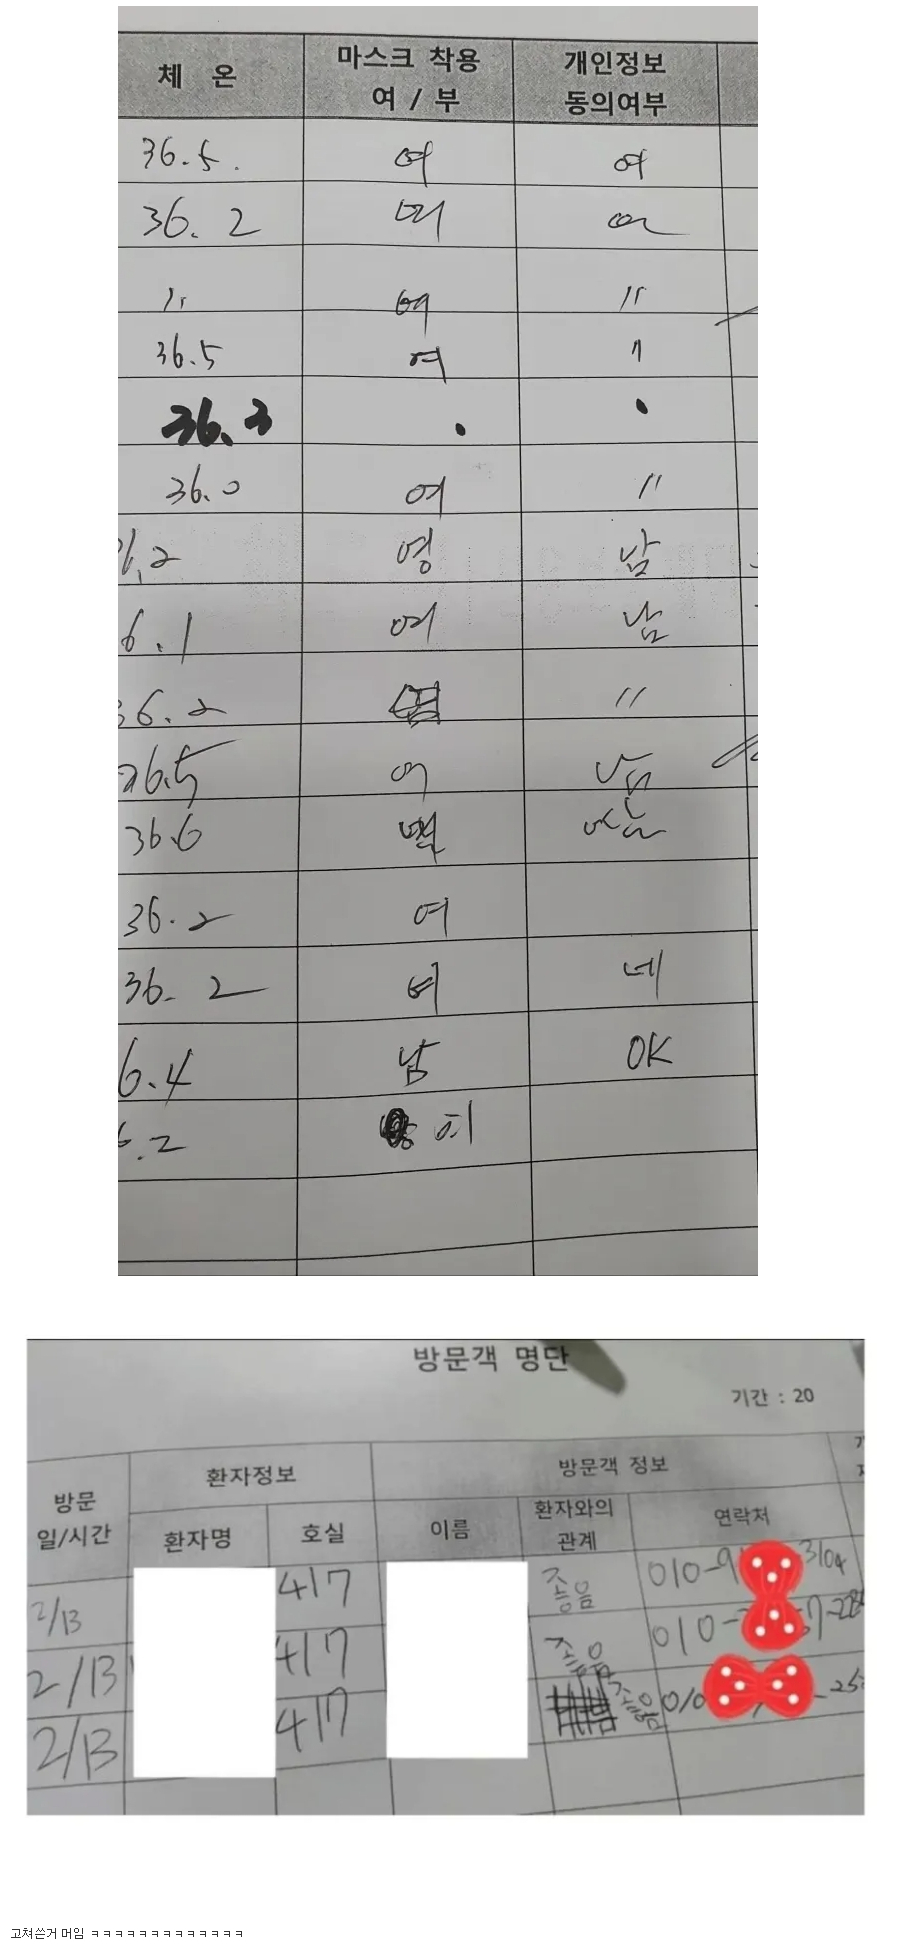 체 온 마스크 착용 개인정보
여 / 부 동의여부
36.5. 여 여
36.2 여 여
" 여 "
36.5 여 "
36.3 . .
36.0 여 "
.2 영 남
6.1 여 남
36.2 "
36.5 여 남
36.6
36.2 여
36.2 여 네
6.4 남 OK
.2
방문객 명단
기간 : 20
방문 환자정보 방문객 정보
일/시간 환자명 호실 이름 환자와의 연락처
관계
2/13 417 좋음 010-9 3104
2/13 417 010-
2/13 417 010 -25
고쳐쓴거 머임 ㅋㅋㅋㅋㅋㅋㅋㅋㅋㅋㅋㅋㅋ